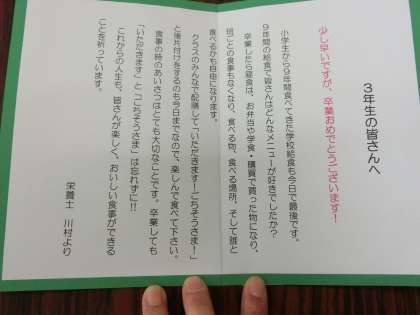 3年生の皆さんへ
少し早いですが、卒業おめでとうございます!
小学生から9年間食べてきた学校給食も今日で最後です。
9年間の給食で皆さんはどんなメニューが好きでしたか?
卒業したら昼食は、お弁当や学食・購買で買った物になり、
班ごとの食事もなくなり、食べる物、食べる場所、そして誰と
食べるかも自由になります。
クラスのみんなで配膳して「いただきます!ごちそうさま!」
と後片付けをするのも今日までなので、楽しんで食べて下さい。
食事の時のあいさつはとても大切なことです。卒業しても
「いただきます」と「ごちそうさま」は忘れずに!!
これからの人生も、皆さんが楽しく、おいしい食事ができる
ことを祈っています。
栄養士 川村より